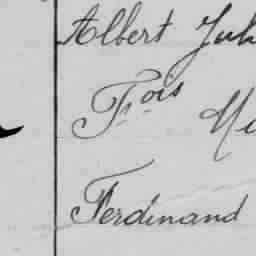 Albert Juh
Fois Mi
Ferdinand